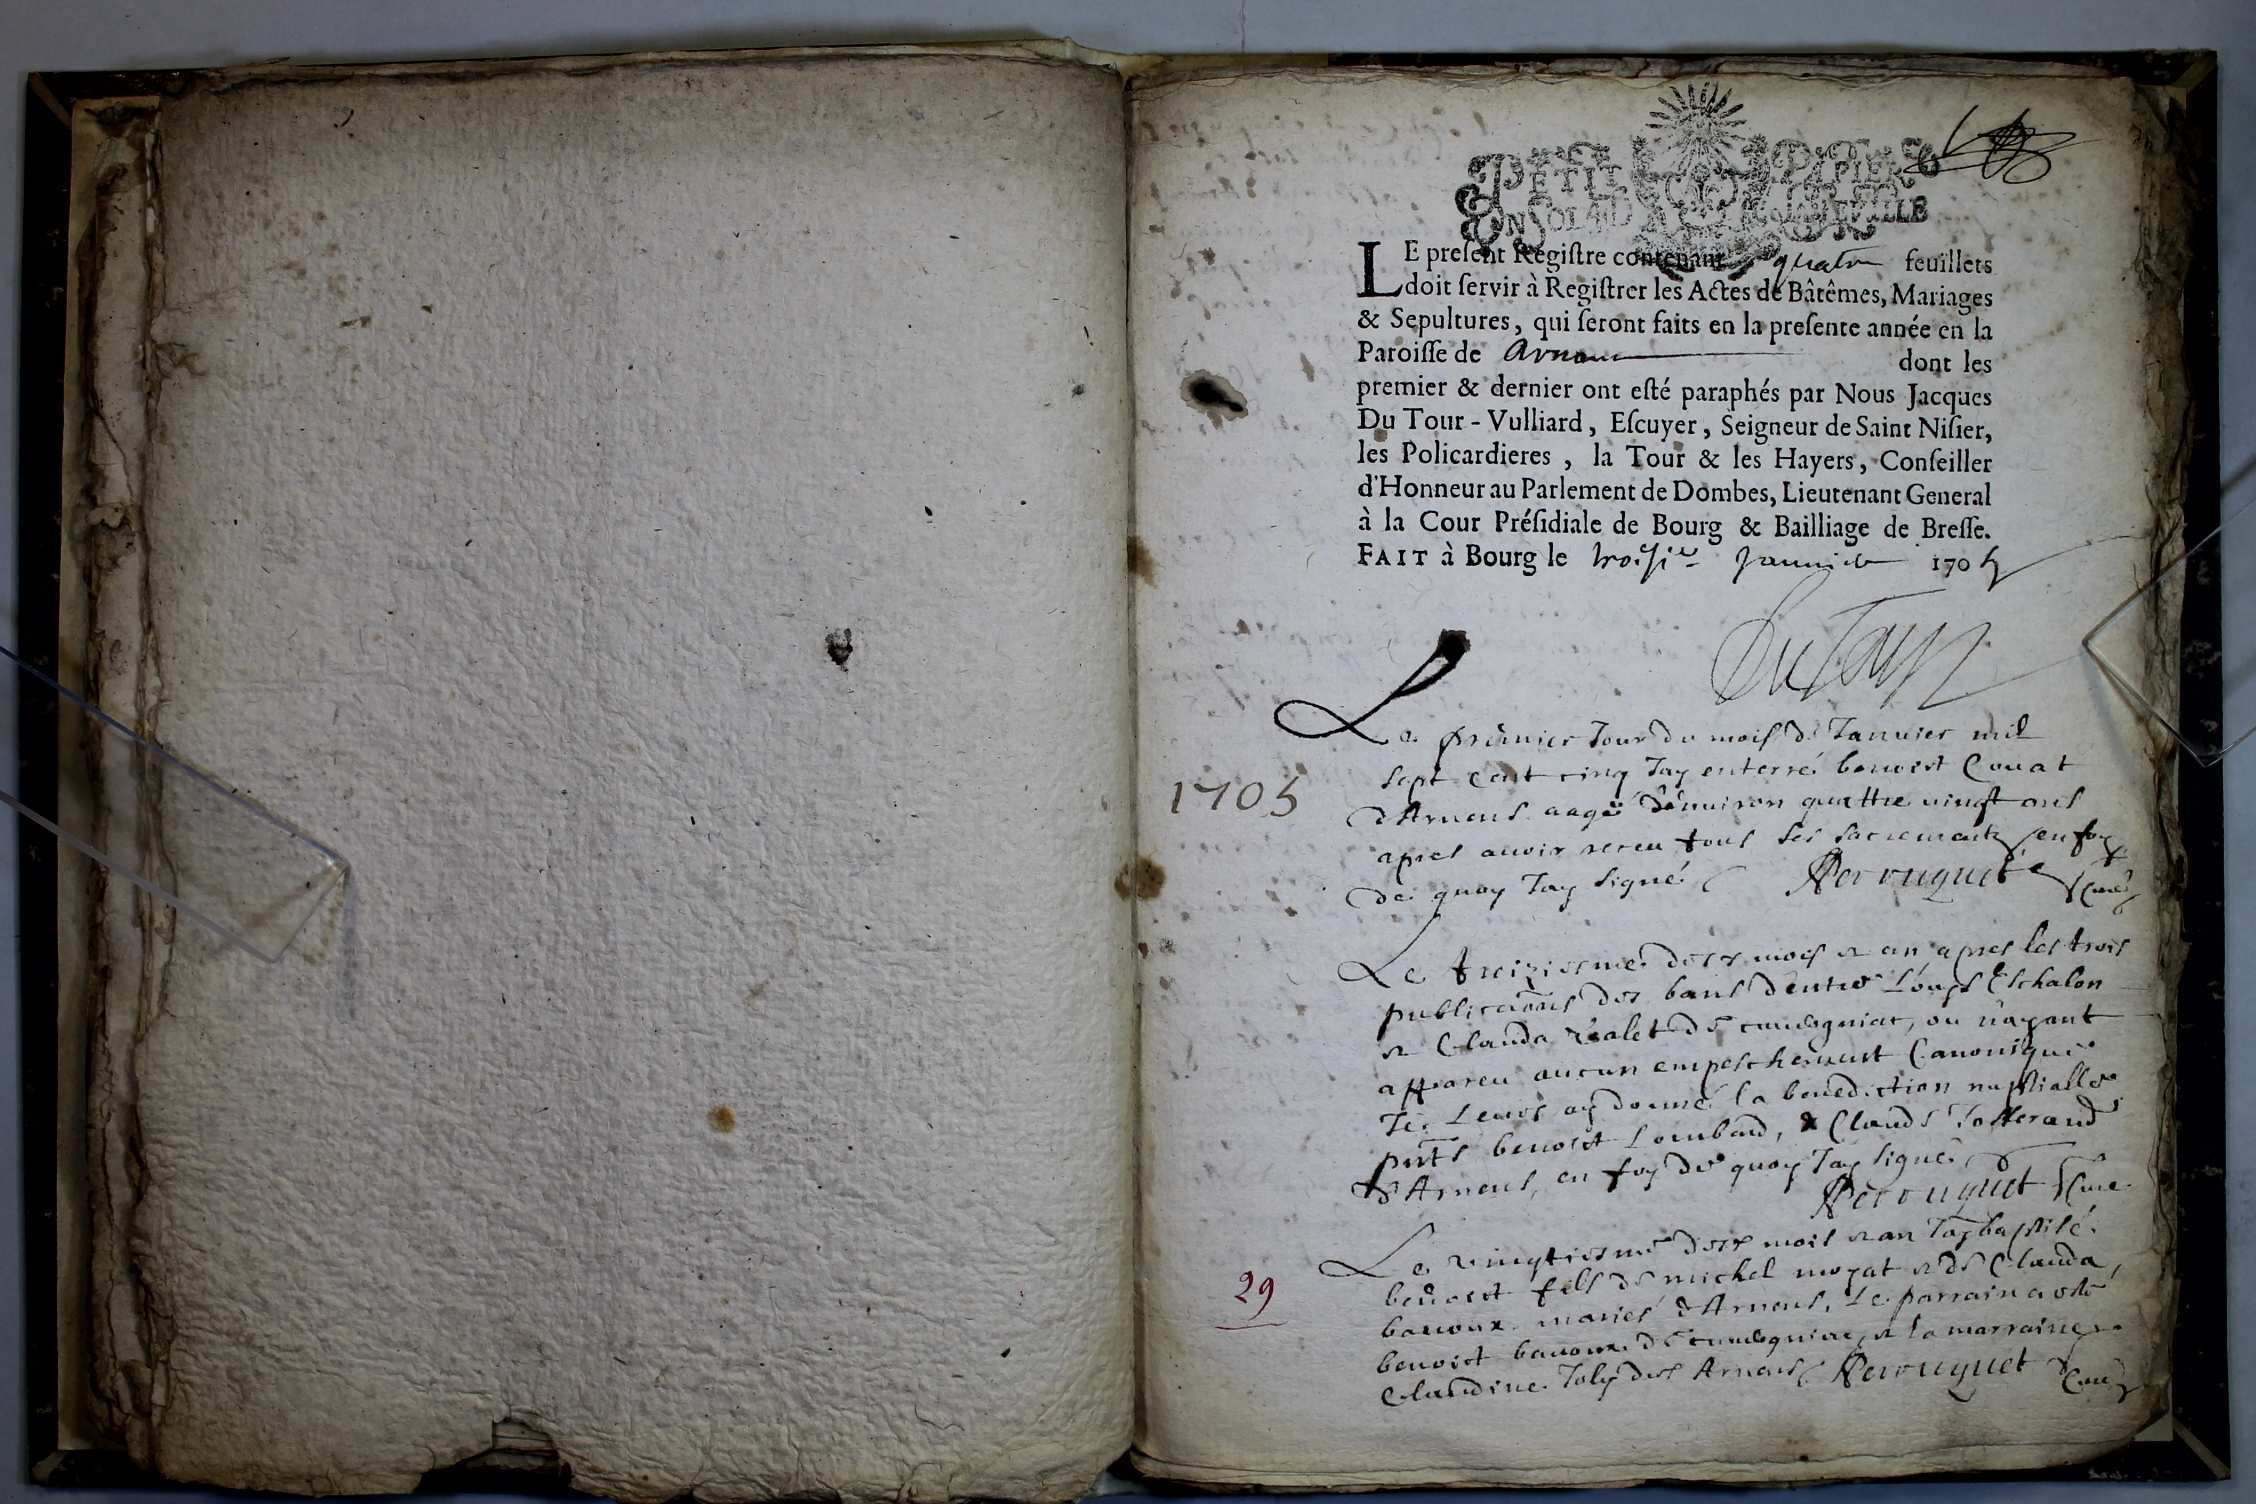 PETIT PAPIER
LE preſent Regiſtre contenant quatre feuillets
doit ſervir à Regiſtrer les Actes de Bâtêmes, Mariages
& Sepultures, qui ſeront faits en la preſente année en la
Paroiſſe de Arnans dont les
premier & dernier ont eſté paraphés par Nous Jacques
Du Tour-Vulliard, Eſcuyer, Seigneur de Saint Niſier,
les Policardieres, la Tour & les Hayers, Conſeiller
d'Honneur au Parlement de Dombes, Lieutenant General
à la Cour Préſidiale de Bourg & Bailliage de Breſſe.
FAIT à Bourg le troisie Janvier 1705
DuTour
Le premier Jour du mois de Janvier mil
1705
sept cent cinq Jay enterré benoist Couat
d'Arnens aagé d'environ quattre vingt ans
apres avoir receu tous les sacrements, en foy
de quoy Jay signé Perruquet Curé
Le treiziesme des mois et an, apres les trois
publications des bans d'entre Louys Eschalon
et Clauda Valet de, ou n'ayant
appareu aucun empeschement Canonique
Je Leurs ay donné la benediction nuptialle
pnts benoist Lombard, & Claude Tofferand
d'Arnens, en foy de quoy Jay signé
Perruquet Curé
Le vingtiesme des mois et an Jay baptisé
29
benoist fils de michel moyat et de Clauda
bauoux mariés d'Arnens, Le parrain a esté
benoist bauoux de et la marraine
Claudine Joly des Arnens Perruquet Curé